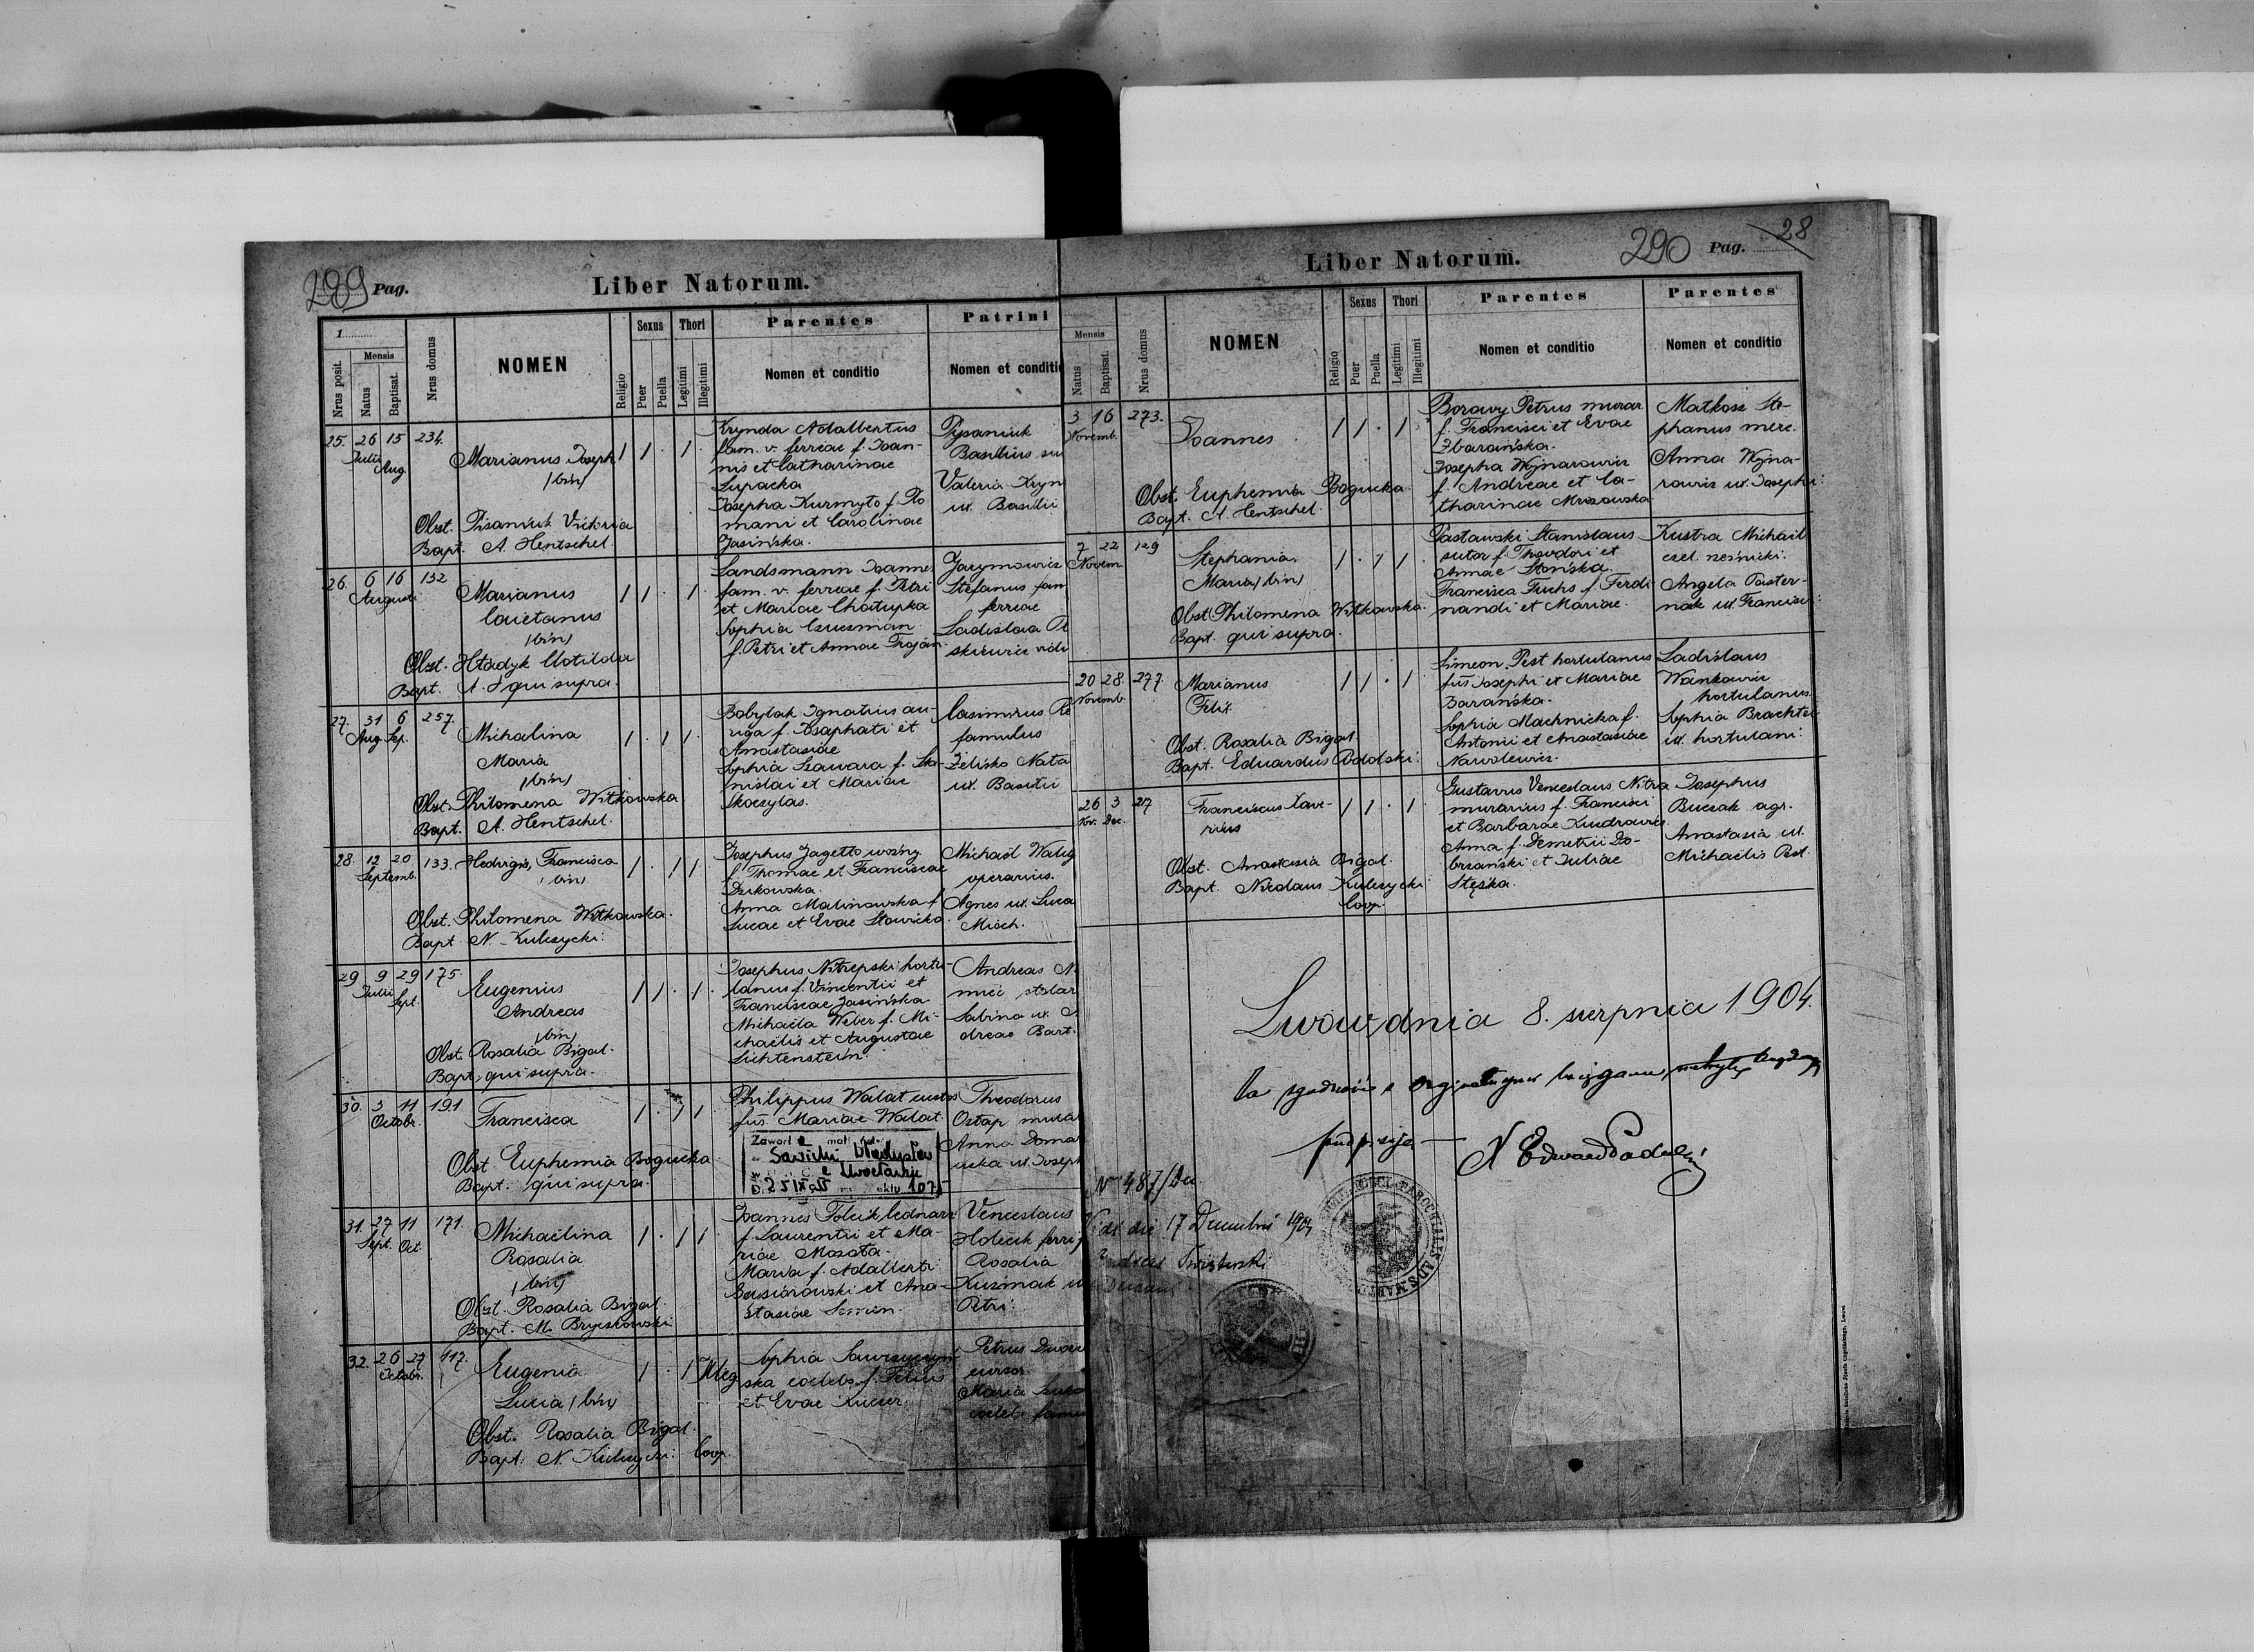 289 Pag.
Liber Natorum.
1
Nrus posit.
Mensis
Natus
Baptisat.
Nrus domus
NOMEN
Religio
Sexus
Puer
Puella
Thori
Legitimi
Illegitimi
Parentes
Nomen et conditio
Patrini
Nomen et conditio
25. 26 15 234.
Julii Aug.
Marianus Joseph
(bin)
1 1 . 1 .
Obst. Pisaniuk Victoria
Bapt. A. Hentschel.
Krynda Adalbertus
fam. v. ferreae f. Joan-
nis et Catharinae
Lupacka
Josepha Kurmyto f. Ro
mani et Carolinae
Jasińska.
Pysaniuk
Basilius
Valeria Kryn
ux. Basilii
26. 6 16 132
Augusti
Marianus
Caietanus
(bin)
1 1 . 1 .
Obst. Hładyk Clotilda
Bapt. A. H qui supra.
Landsmann Joannes
fam. v. ferreae f. Petri
et Mariae Chałupka
Sophia Czuczman
f. Petri et Annae Trojan.
Jarymowicz
Stefanus fam
ferreae
Ladislaa
27. 31 6 257.
Aug. Sep.
Michalina
Maria
(bin)
1 . 1 1 .
Obst. Philomena Witkowska.
Bapt. A. Hentschel.
Babylak Ignatius au-
riga f. Josaphati et
Anastasiae
Sophia Szawara f. Sta-
nislai et Mariae
Skoczylas.
Casimirus
famulus
Zelisko Nata
ux. Basilii
28. 12 20 133.
Septemb.
Hedvigis, Francisca
(bin)
1 . 1 1
Obst. Philomena Witkowska.
Bapt. N. Kulczycki.
Josephus Jagełło woźny
f. Thomae et Franciscae
Dzikowska.
Anna Malinowska f.
Lucae et Evae Stawicka.
Michaël
operarius.
Agnes ux. Luca
Misch.
29 9 29 175.
Julii Sept.
Eugenius
Andreas
(bin)
1 1 . 1 .
Obst. Rosalia Bigal.
Bapt. qui supra.
Josephus Nitrepski hortu-
lanus f. Vincentii et
Franciscae Jasińska
Michaëla Weber f. Mi-
chaëlis et Augustae
Lichtenstein.
Andreas
stolar
Sabina ux.
dreae Bart.
30. 3 11 191
Octobr.
Francisca
1 . 1 1
Obst. Euphemia Bogucka.
Bapt. qui supra.
Philippus Walat custos
fus. Mariae Walat.
Zawarł a
Sawicki Władysław
aktu 107
Theodorus
Ostap
Anna
ux. Joseph
31. 27 11 171.
Sept. Oct.
Michaëlina
Rosalia
(bin)
1 . 1 1
Obst. Rosalia Bigal.
Bapt. M. Bryczkowski
Joannes Tolcik, lednarz
f. Laurentii et Ma-
riae Mozota.
Maria f. Adalberti
et Ana-
stasiae Semen.
Venceslaus
Rosalia
Kuzmak
Petri.
32. 26 27 117.
Octobr.
Eugenia
Lucia (bin)
1 . 1 Illeg
Obst. Rosalia Bigal.
Bapt. N. Kulczycki. Coop.
Sophia
ska coelebs f.
et Evae Kucer
Petrus
cursor
Maria
Liber Natorum.
290 Pag. 28
Mensis
Natus
Baptisat.
Nrus domus
NOMEN
Religio
Sexus
Puer
Puella
Thori
Legitimi
Illegitimi
Parentes
Nomen et conditio
Parentes
Nomen et conditio
3 16 273.
Novemb.
Joannes
1 1 . 1
Obst. Euphemia Bogucka.
Bapt. A. Hentschel.
Borawy Petrus murar
f. Francisci et Evae
Zbarańska.
Josepha Wojnarowicz
f. Andreae et Ca-
tharinae Mrozowska
Matkosz Ste-
phanus merc.
Anna Wojna-
rowicz ux. Josephi.
7 22 129
Novem.
Stephania
Maria (bin)
1 . 1 1 .
Obst. Philomena Witkowska.
Bapt. qui supra.
Pastawski Stanislaus
sutor f. Theodori et
Annae Słońska.
Francisca Fuchs f. Ferdi
nandi et Mariae.
Kustra Michaël
czel. rzeźnicki.
Angela Paster-
nak ux. Francisci.
20 28 277.
Novemb.
Marianus
Felix
1 1 . 1
Obst. Rosalia Bigal.
Bapt. Eduardus Podolski.
Simeon Pest hortulanus
fus Josephi et Mariae
Barańska.
Sophia Machnicka f.
Antonii et Anastasiae
Nawolewicz.
Ladislaus
Wankowicz
hortulanus
Sophia
ux. hortulani.
26 3 217
Nov. Dec.
Franciscus Xave-
rius
1 1 . 1
Obst. Anastasia Bigal.
Bapt. Nicolaus Kulczycki
Coop.
Gustavus Venceslaus Nitra
murarius f. Francisci
et Barbarae
Anna f. Demetrii Do-
brzański et Juliae
Stęska.
Josephus
Buczak agr.
Anastasia ux.
Michaëlis Pest.
Lwów, dnia 8. sierpnia 1904.
Za zgodność z
podpisuje
X Edward Podolski
No 487/Dec
Vidi die 17 Decembris 1904